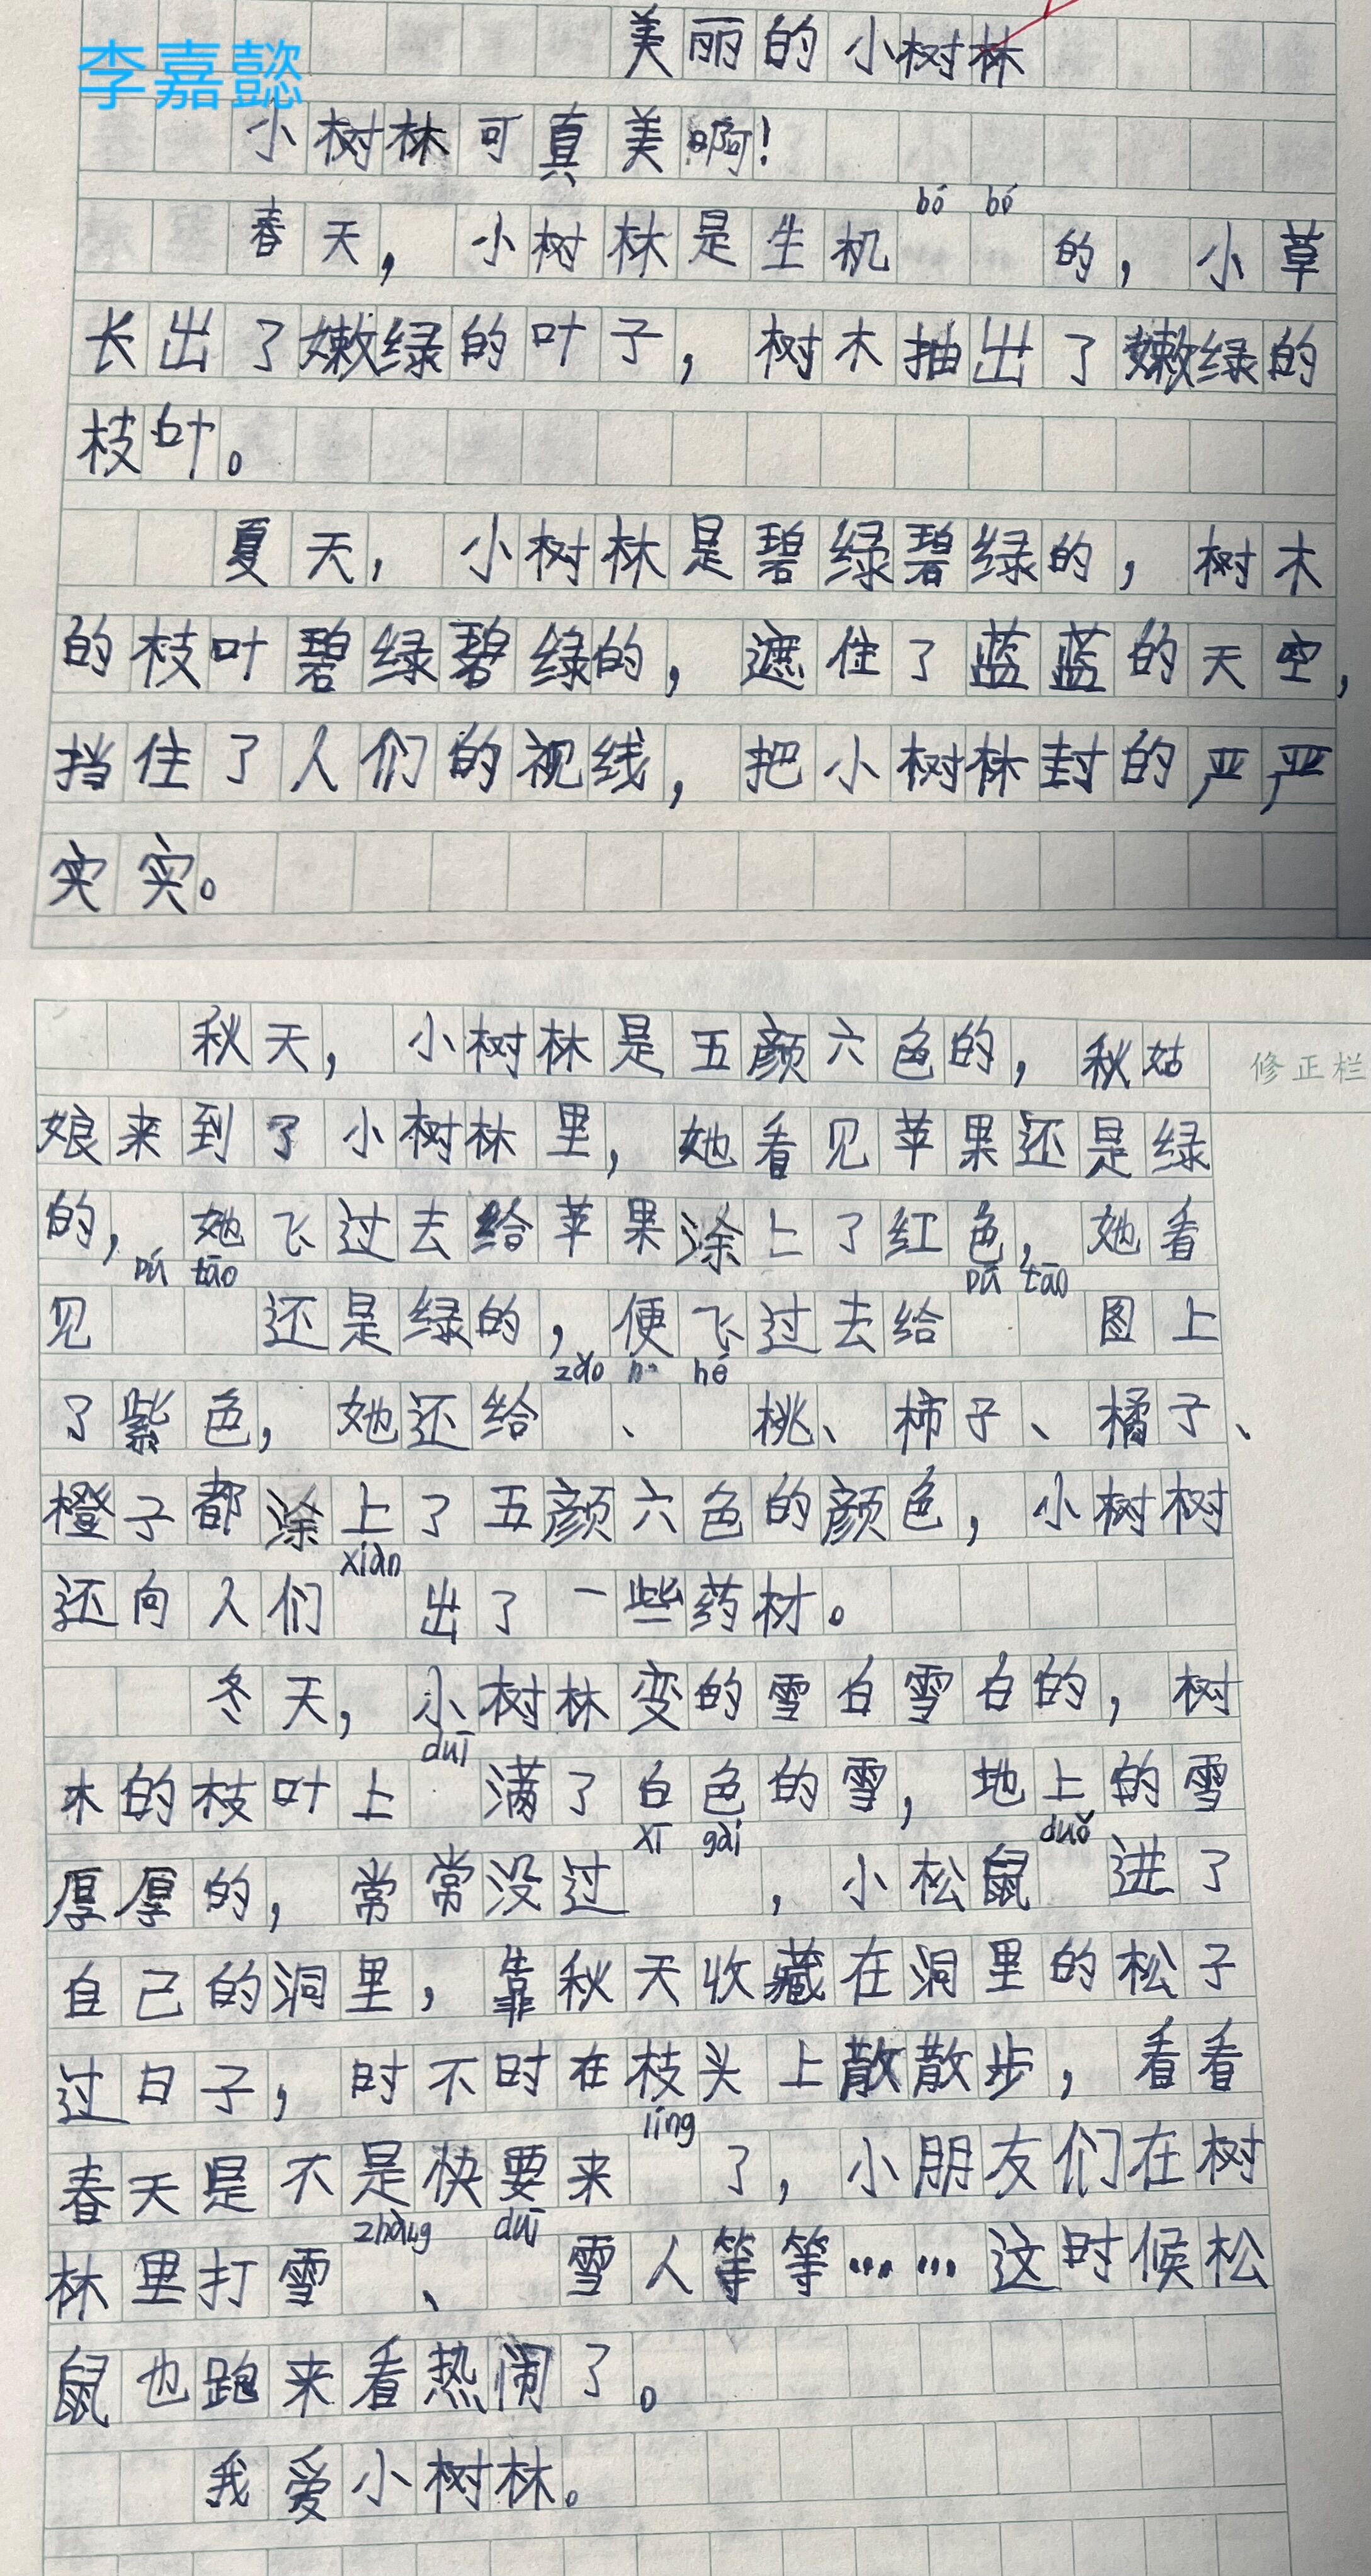 美丽的小树林
李嘉懿
小树林可真美啊!
bó bó
春天，小树林是生机 的，小草
长出了嫩绿的叶子，树木抽出了嫩绿的
枝叶。
夏天，小树林是碧绿碧绿的，树木
的枝叶碧绿碧绿的，遮住了蓝蓝的天空，
挡住了人们的视线，把小树林封的严严
实实。
秋天，小树林是五颜六色的，秋姑
修正栏
娘来到了小树林里，她看见苹果还是绿
的，她飞过去给苹果涂上了红色，她看
pú tāo pú tāo
见 还是绿的，便飞过去给 图上
zǎo hé
了紫色，她还给 、 桃、柿子、橘子、
橙子都涂上了五颜六色的颜色，小树树
xiàn
还向人们 出了一些药材。
冬天，小树林变的雪白雪白的，树
duī
木的枝叶上 满了白色的雪，地上的雪
xī gài duǒ
厚厚的，常常没过 ，小松鼠 进了
自己的洞里，靠秋天收藏在洞里的松子
过日子，时不时在枝头上散散步，看看
líng
春天是不是快要来 了，小朋友们在树
zhàng duī
林里打雪 、 雪人等等……这时候松
鼠也跑来看热闹了。
我爱小树林。